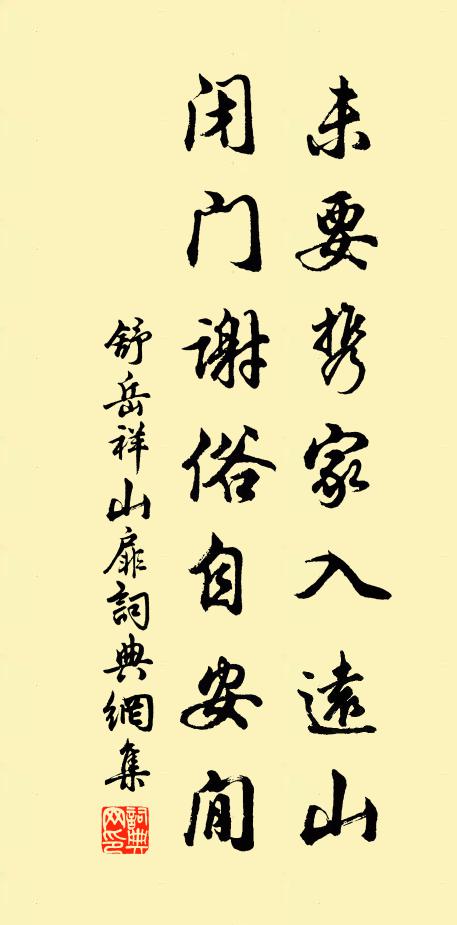 未要携家入远山
闭门谢俗自安闲
舒岳祥山扉詞典網集
詞典网印